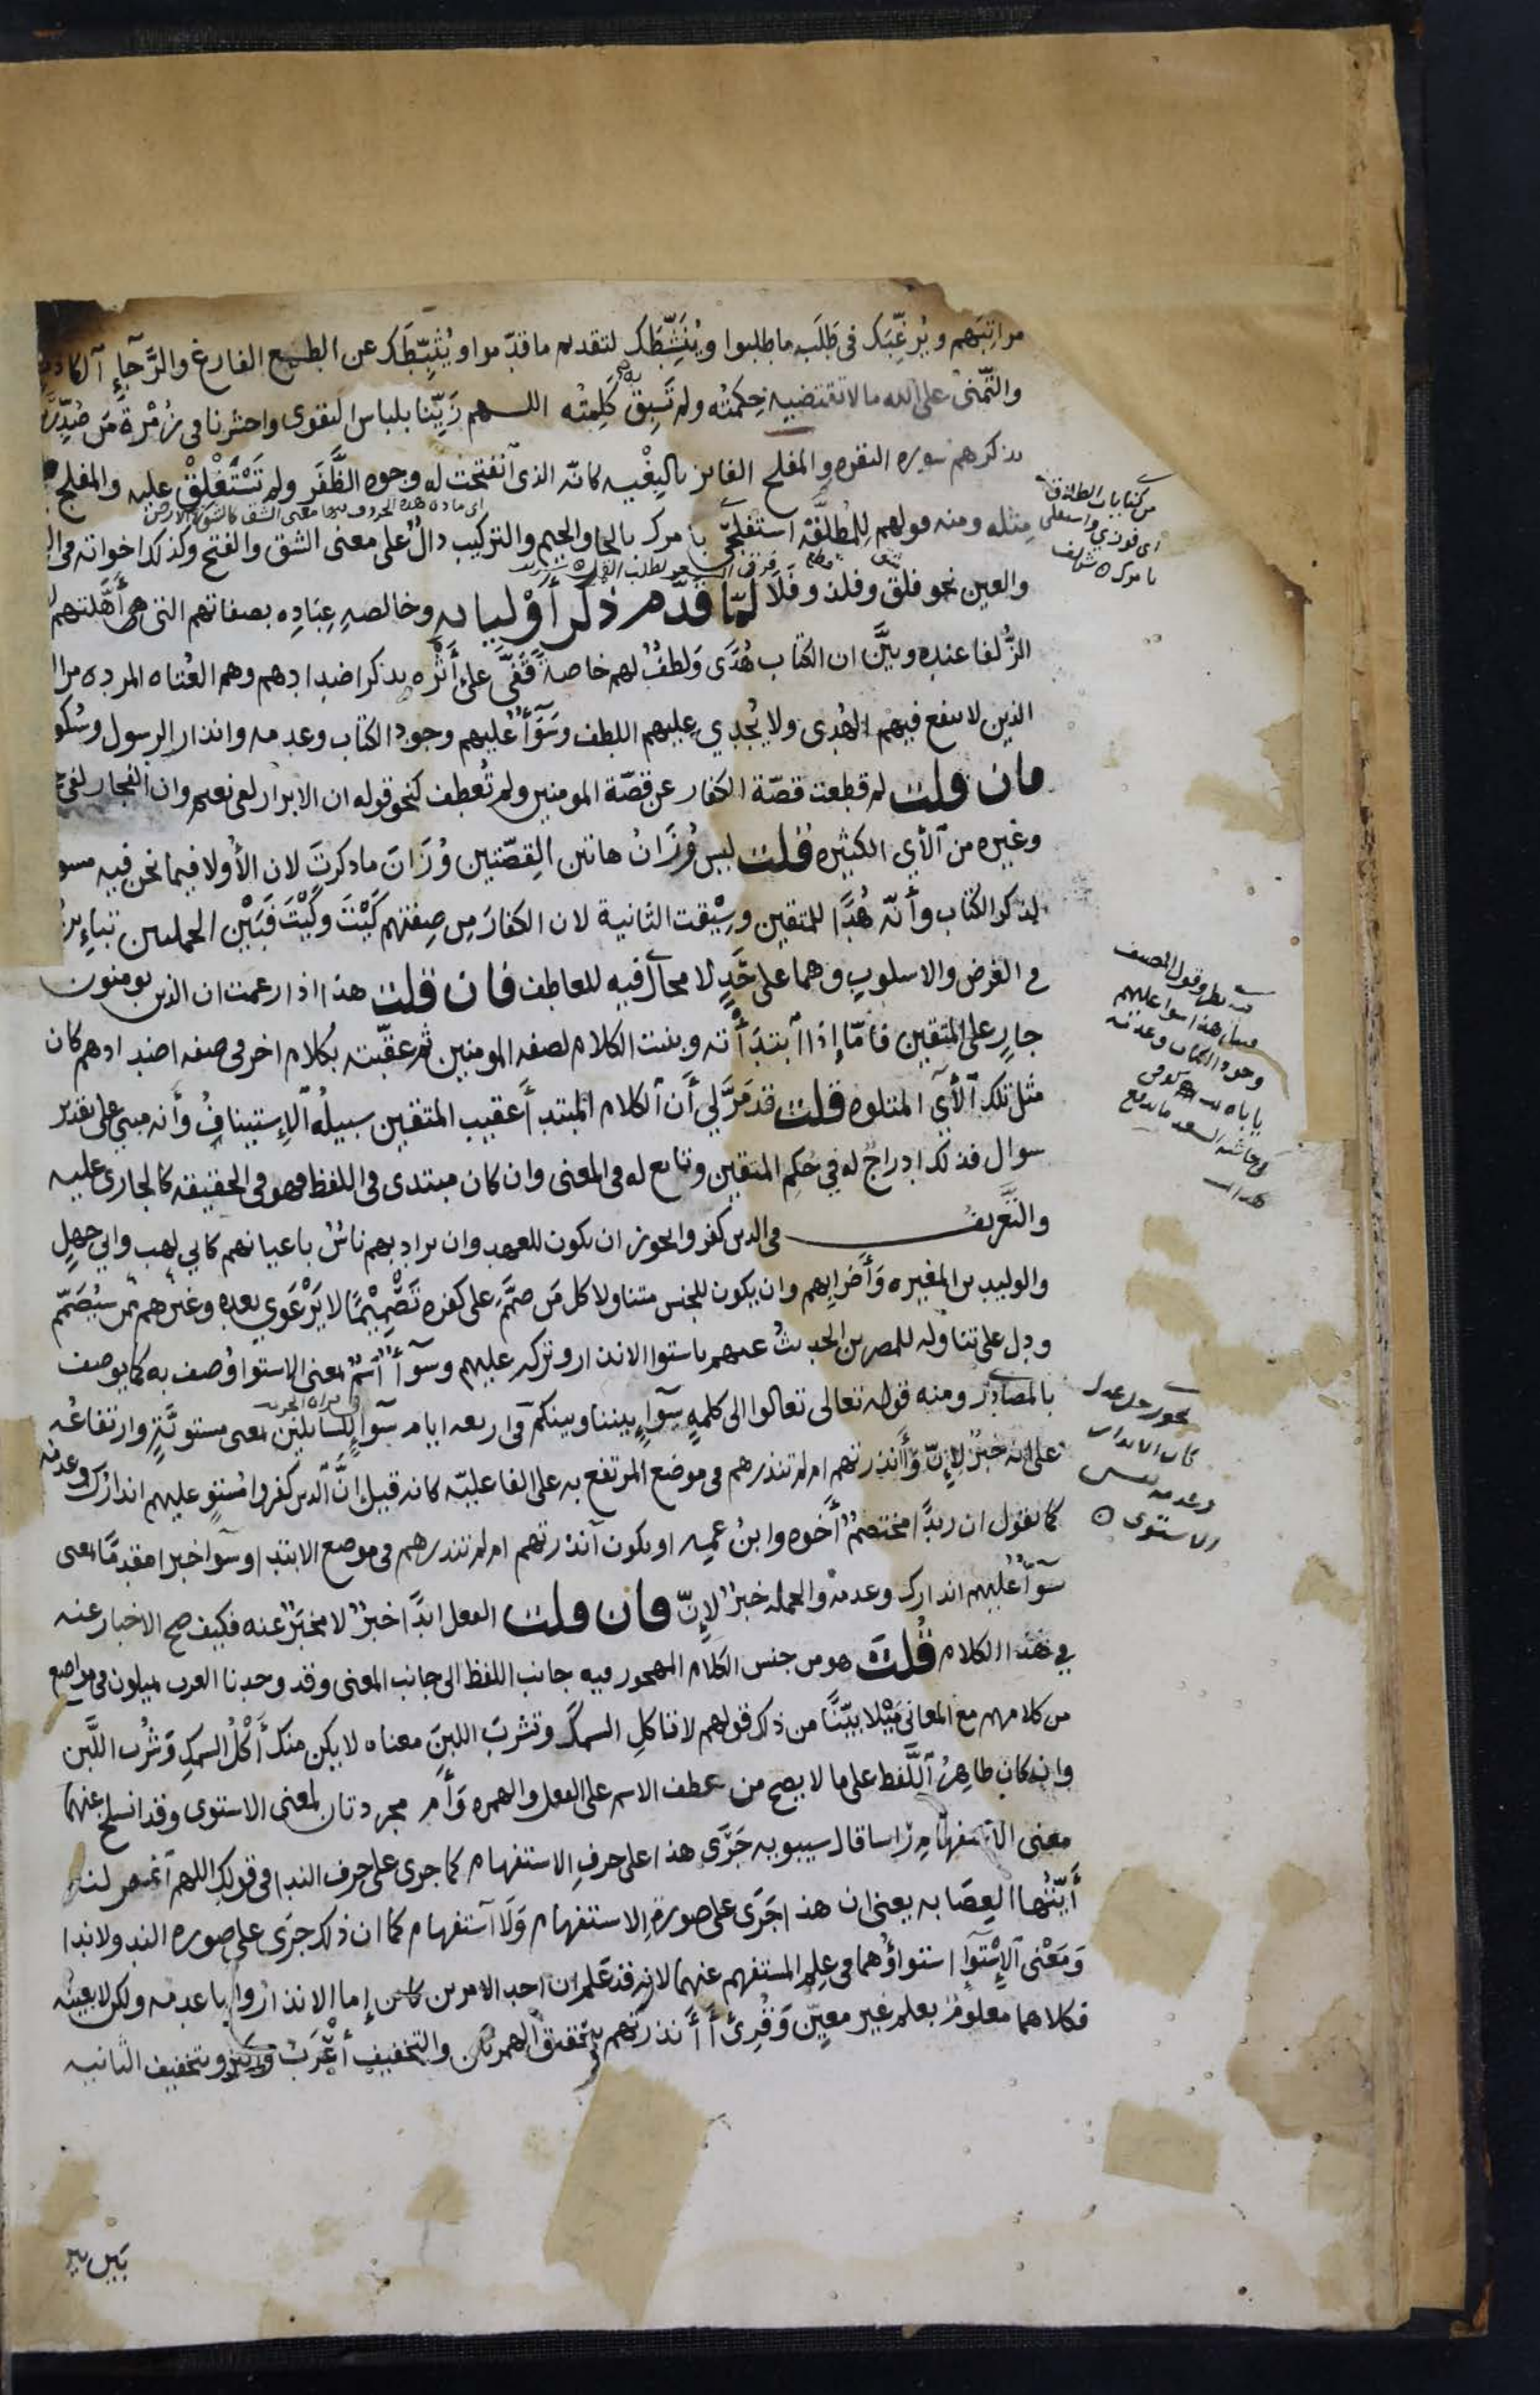 مراتبهم ويُرغّبك في طَلَب ما طلبوا ويُنشّطك لتقديم ما قدّموا ويُثبّطك عن الطمع الفارغ والرّجاء الكاذب
والتّمني على الله ما لا تقتضيه حكمته ولم تسبق به كلمته اللهم زيّنا بلباس التقوى واحشرنا في زمرة من صدّرت
بذكرهم سورة البقرة والمفلح الفائز بالبغيه كأنّه الذي انفتحت له وجوه الظّفر ولم تستغلق عليه والمفلج
مثله ومنه قولهم للمطلّقة استفلحي بامرك بالحا والجيم والتركيب دالّ على معنى الشق والفتح وكذلك اخواته في الفا
والعين نحو فلق وفلذ وفلا لمّا قدّم ذكر أوليايه وخالصه عباده بصفاتهم التي هي أهّلتهم
الزّلفا عنده وبيّن ان الكتاب هُدًى ولطفٌ لهم خاصة قفّى على أثره بذكر اضدادهم وهم العتاه المرده من
الذين لا ينفع فيهم الهُدى ولا يُجدي عليهم اللطف وسوآءٌ عليهم وجود الكتاب وعدمه وانذار الرسول وسكو
فان قلت لم قطعت قصّة الكفار عن قصّة المومنين ولم تُعطف كنحو قوله ان الابرار لفي نعيم وان الفجار لفي
وغيره من الآي الكثيره قلت ليس وُزَانُ هاتين القِصّتين وُزَانَ ما ذكرتَ لان الأولا فيما نحن فيه مسو
لذكر الكتاب وأنّه هُدًا للمتقين وسِيْقت الثانية لان الكفارَ مِن صِفتهم كَيْتَ وكَيْتَ فبَيْن الجملتين تباين
في الغرض والاسلوب وهما على حَدٍّ لا مجال فيه للعاطف فان قلت هذا اذا زعمت ان الذين يومنون
جارٍ على المتقين فامّا إذا ابتدأته وبنيت الكلام لصفه المومنين ثم عقّبته بكلام اخر في صفه اضدادهم كان
مثل تلك الآي المتلوه قلت قد مَرَّ لي أن الكلام المبتدأ عقيب المتقين سبيلُه الإستيناف وأنه مبني على تقدير
سوال فذلك ادراجٌ له في حكم المتقين وتابع له في المعنى وان كان مبتدى في اللفظ فهو في الحقيقه كالجاري عليه
والتّعريف في الذين كفروا يجوز ان يكون للعهد وان يراد بهم ناسٌ باعيانهم كابي لهب وابي جهل
والوليد بن المغيره وأضرابهم وان يكون للجنس متناولا كل مَن صمَّم على كفره تصميمًا لا يَرْعوي بعده وغيرهم ممن سيُصمّم
ودل على تناوله للمصرين الحديثُ عنهم باستوا الانذار وتركه عليهم وسوآءٌ اسمٌ بمعنى الاستوا وُصف به كما يوصف
بالمصادر ومنه قوله تعالى تعالوا الى كلمةٍ سوآءٍ بيننا وبينكم في اربعه ايام سوآءٍ للسائلين بمعنى مستويةٍ وارتفاعُه
على انه خبرٌ لإنّ وءأنذرتهم ام لم تنذرهم في موضع المرتفع به على الفاعليّه كانه قيل انّ الذين كفروا مستوٍ عليهم انذارُك وعدمُه
كما تقول ان زيدًا مختصمٌ أخوه وابنُ عميه او يكون آنذرتهم ام لم تنذرهم في موضع الابتدا وسوآ خبرا مقدمًا بمعنى
سوآءٌ عليهم انذارك وعدمه والجمله خبرٌ لإنّ فان قلت الفعل ابدًا خبرٌ لا مخبَرٌ عنه فكيف صح الاخبار عنه
في هذا الكلام قلت هو من جنس الكلام المهجور فيه جانب اللفظ الى جانب المعنى وقد وجدنا العرب يميلون في مواضع
من كلامهم مع المعاني مَيْلا بيّنًا من ذلك قولهم لا تاكل السمك وتشربَ اللبن معناه لا يكن منك أكل السمك وشُرب اللّبن
وان كان ظاهرُ اللّفظ على ما لا يصح من عطف الاسم على الفعل والهمزه وأم مجردتان لمعنى الاستوى وقد انسلخ عنهما
معنى الاستفهام راسا قال سيبويه جَرَى هذا على حرفِ الاستفهام كما جرى على حرف الندا في قولك اللهم اغفر لنا
أيّتُها العِصَابه يعني ان هذا جَرَى على صورة الاستفهام ولا استفهام كما ان ذلك جرَى على صوره الندا ولا ندا
ومَعْنى الإستوآء استواؤهما في علم المستفهم عنهما لانه قد عَلم ان احد الامرين كائن إما الانذار واما عدمه ولكن لا بعينه
فكلاهما معلومٌ بعلم غير معيّن وقُرِئ أأنذرتهم بتحقيق الهمزتين والتخفيف أعْرَب وأكثر وبتخفيف الثانيه
بَيْن بين
اي ماده هذه الحروف فيها معنى الشق
من كنايات الطلاق
اي فوزي واستقلي
بامرك
وجود الكتاب وعدمه
الاستوى